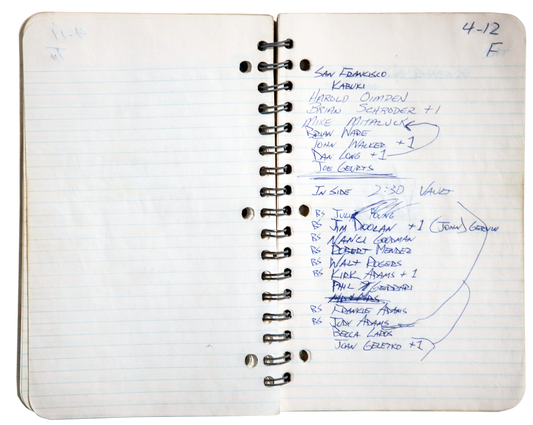 4-12
F
SAN FRANCISCO
KABUKI
HAROLD OIMDEN
BRIAN SCHRODER +1
MIKE MITALUCK
BRIAN WARE
JOHN WALKER +1
DAN LONG +1
JOE GEURTS
IN SIDE 2:30 VAULT
BS JULIE YOUNG
BS JIM DOOLAN +1 (JOHN)
BS NANCI GOODMAN
BS ROBERT MENDEZ
BS WALT ROGERS
BS KIRK ADAMS +1
PHIL
BS FRANKIE ADAMS
BS JUDY ADAMS
BECCA
JOAN GELETKO +1